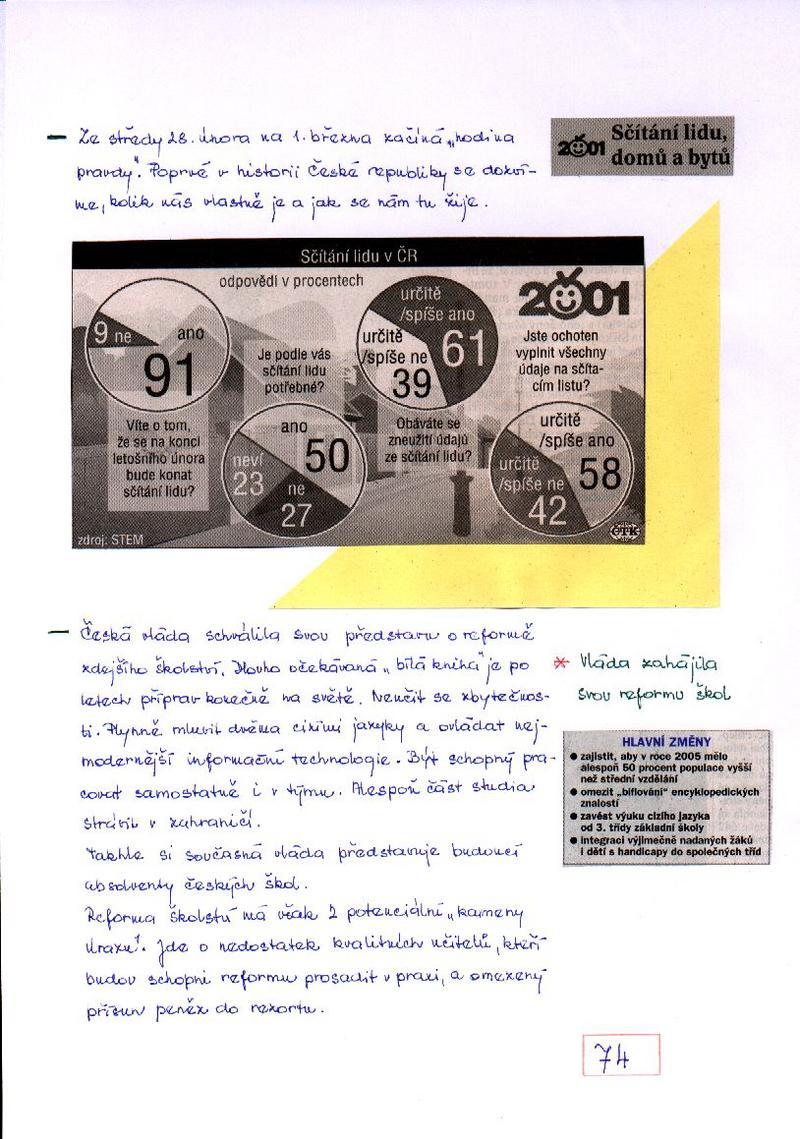 – Ze středy 28. února na 1. března začíná „hodina
pravdy". Poprvé v historii České republiky se dozví-
me, kolik nás vlastně je a jak se nám tu žije.
2001 Sčítání lidu,
domů a bytů
Sčítání lidu v ČR
odpovědí v procentech
9 ne
ano
91
Víte o tom,
že se na konci
letošního února
bude konat
sčítání lidu?
Je podle vás
sčítání lidu
potřebné?
ano
50
neví
23
ne
27
určitě
/spíše ano
61
určitě
/spíše ne
39
Obáváte se
zneužití údajů
ze sčítání lidu?
2001
Jste ochoten
vyplnit všechny
údaje na sčíta-
cím listu?
určitě
/spíše ano
58
určitě
/spíše ne
42
zdroj: STEM
ČTK
– Česká vláda schválila svou představu o reformě
zdejšího školství. Dlouho očekávaná „bílá kniha" je po
letech příprav konečně na světě. Neučit se zbytečnos-
ti. Plynně mluvit dvěma cizími jazyky a ovládat nej-
modernější informační technologie. Být schopný pra-
covat samostatně i v týmu. Alespoň část studia
strávit v zahraničí.
Takhle si současná vláda představuje budoucí
absolventy českých škol.
Reforma školství má však 2 potenciální „kameny
úrazu". Jde o nedostatek kvalitních učitelů, kteří
budou schopni reformu prosadit v praxi, a omezený
přísun peněz do rezortu.
* Vláda zahájila
svou reformu škol
HLAVNÍ ZMĚNY
● zajistit, aby v roce 2005 mělo
alespoň 50 procent populace vyšší
než střední vzdělání
● omezit „biflování" encyklopedických
znalostí
● zavést výuku cizího jazyka
od 3. třídy základní školy
● integraci výjimečně nadaných žáků
i dětí s handicapy do společných tříd
74